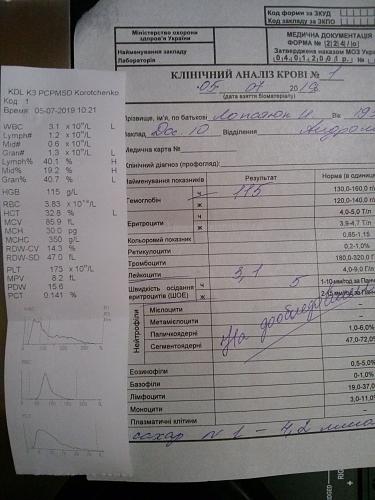 KDL K3 PCPM5D Korotchenko
Код: 1
Время: 05-07-2019 10:21
WBC 3.1 x 10⁹/L L
Lymph# 1.2 x 10⁹/L
Mid# 0.6 x 10⁹/L
Gran# 1.3 x 10⁹/L L
Lymph% 40.1 % H
Mid% 19.2 % H
Gran% 40.7 % L
HGB 115 g/L
RBC 3.83 x 10¹²/L
HCT 32.8 % L
MCV 85.9 fL
MCH 30.0 pg
MCHC 350 g/L
RDW-CV 14.3 %
RDW-SD 47.0 fL
PLT 173 x 10⁹/L
MPV 8.2 fL
PDW 15.6
PCT 0.141 %
WBC
RBC
PLT
Код форми за ЗКУД
Код закладу за ЗКПО
Міністерство охорони
здоров'я України
Найменування закладу
Лабораторія
МЕДИЧНА ДОКУМЕНТАЦІЯ
ФОРМА № 224/о
Затверджена наказом МОЗ Україн
04.01.2001 р.
КЛІНІЧНИЙ АНАЛІЗ КРОВІ № 1
05 07 2019
(дата взяття біоматеріалу)
Прізвище, ім'я, по батькові
Заклад 10 Відділення
Медична карта №
Клінічний діагноз (профогляд):
Найменування показників Результат Норма (в одиниц
Гемоглобін ч 115 130,0-160,0 г/л
ж 120,0-140,0 г/
Еритроцити ч 4,0-5,0 Т/л
ж 3,9-4,7 Т/л
Кольоровий показник 0,85-1,15
Ретикулоцити 0,2-1,0%
Тромбоцити 180,0-320,0 Г
Лейкоцити 3,1 4,0-9,0 Г/л
Швидкість осідання еритроцитів (ШОЕ) ч 5 1-10 мм/год за Панч
ж 2-15 мм/год за Панч
Нейтрофіли
Мієлоцити
Метамієлоцити
Паличкоядерні 1,0-6,0%
Сегментоядерні 47,0-72,0%
На дообстеження
Еозинофіли 0,5-5,0%
Базофіли 0-1,0%
Лімфоцити 19,0-37,0
Моноцити 3,0-11,0
Плазматичні клітини
сахар N 1 – 4,2